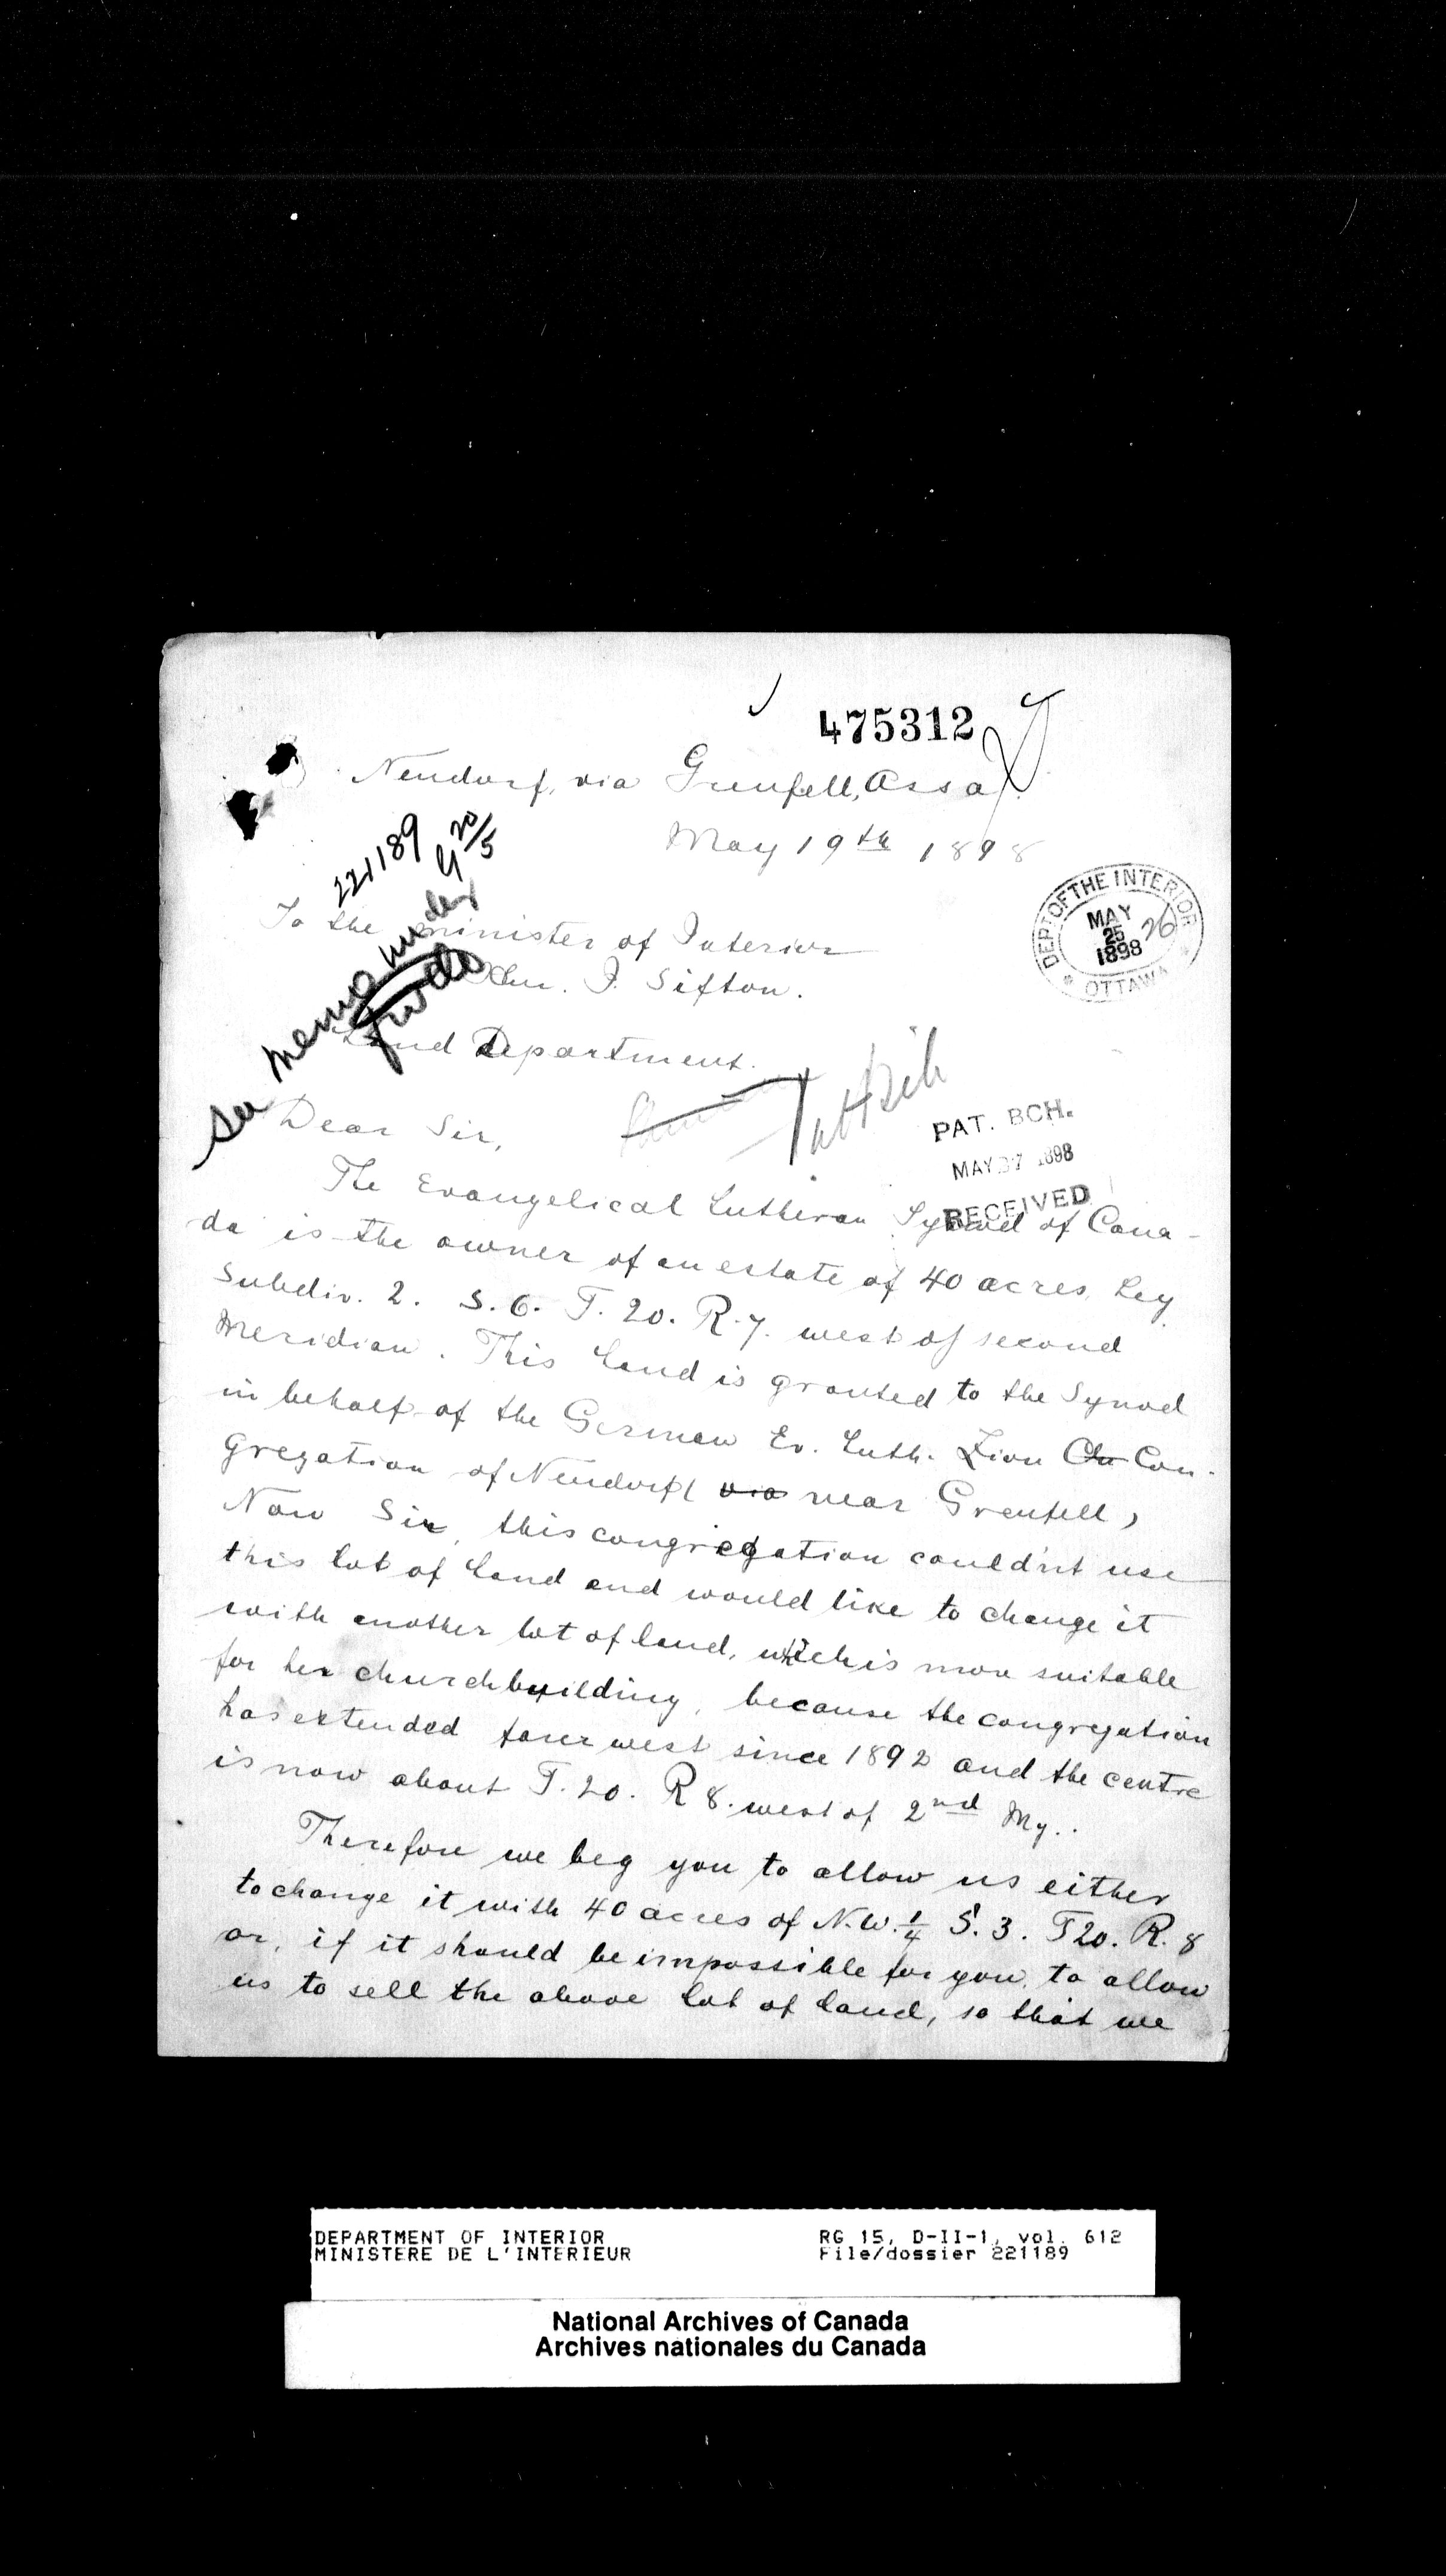 475312
Neudorf, via Grenfell, Assa.
May 19th 1898
221189
20/5
To the minister of Interior
Hon. J. Sifton.
Land Department.
See memo under
DEPT OF THE INTERIOR
MAY
25
1898
26
OTTAWA
Dear Sir,
PAT. BCH.
MAY 27 1898
RECEIVED
The Evangelical Lutheran Synod of Cana-
da is the owner of an estate of 40 acres, Leg.
Subdiv. 2. S. 6. T. 20. R. 7. west of second
Meridian. This land is granted to the Synod
in behalf of the German Ev. Luth. Zion Ch Con-
gregation of Neudorf ( via near Grenfell)
Now Sir, this congregation could'nt use
this lot of land and would like to change it
with another lot of land, which is more suitable
for her churchbuilding, because the congregation
has extended farer west since 1892 and the centre
is now about T. 20. R 8. west of 2nd My..
Therefore we beg you to allow us either
to change it with 40 acres of N.W. 1/4 S. 3. T 20. R. 8
or, if it should be impossible for you, to allow
us to sell the above lot of land, so that we
DEPARTMENT OF INTERIOR
MINISTERE DE L'INTERIEUR
RG 15, D-II-1, vol. 612
File/dossier 221189
National Archives of Canada
Archives nationales du Canada